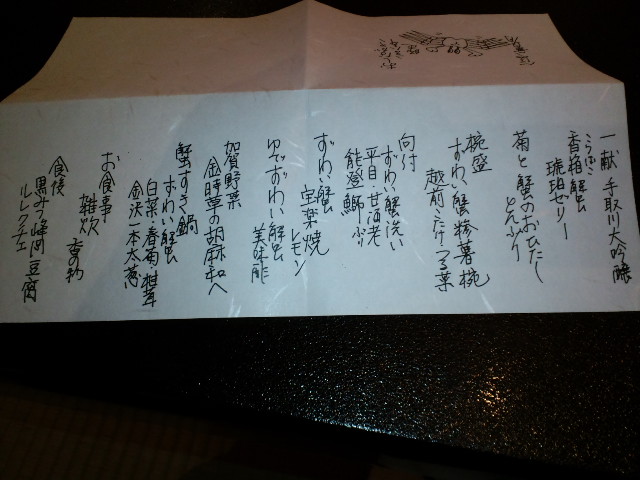 一献 手取川大吟醸
こうばこ
香箱蟹
琥珀ゼリー
菊と蟹のおひたし
とんぶり
椀盛
ずわい蟹糝薯椀
越前こたけ つる菜
向付
ずわい蟹洗い
平目・甘海老
能登鰤
ずわい蟹
宝楽焼
レモン
ゆでずわい蟹
美味酢
加賀野菜
金時草の胡麻和へ
蟹すき鍋
ずわい蟹
白菜・春菊・椎茸
金沢一本太葱
お食事
雑炊
香の物
食後
黒みつ峰岡豆腐
ルレクチェ